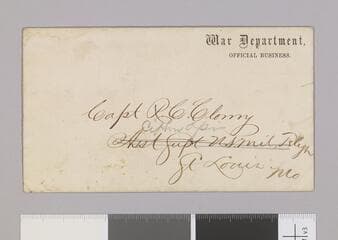 War Department,
OFFICIAL BUSINESS.
Capt R C Clowry
Asst Supt U S Mil Telgh
St Louis
Mo